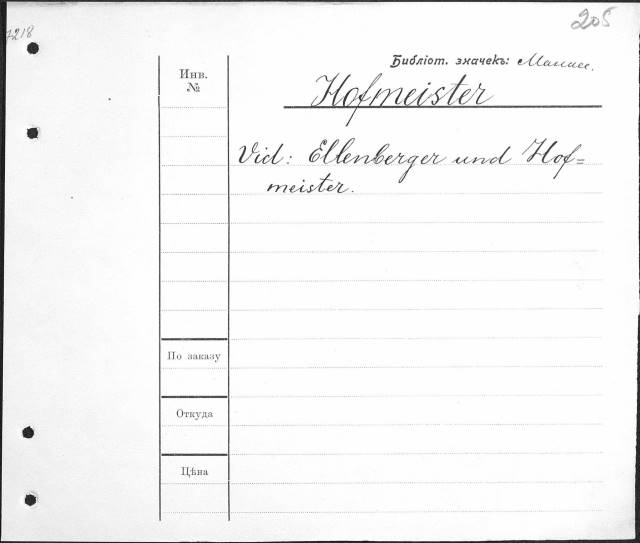 205
7218
Библіот. значекъ:
Инв.
№
Hofmeister
Vid: Ellenberger und Hof=
meister.
По заказу
Откуда
Цѣна